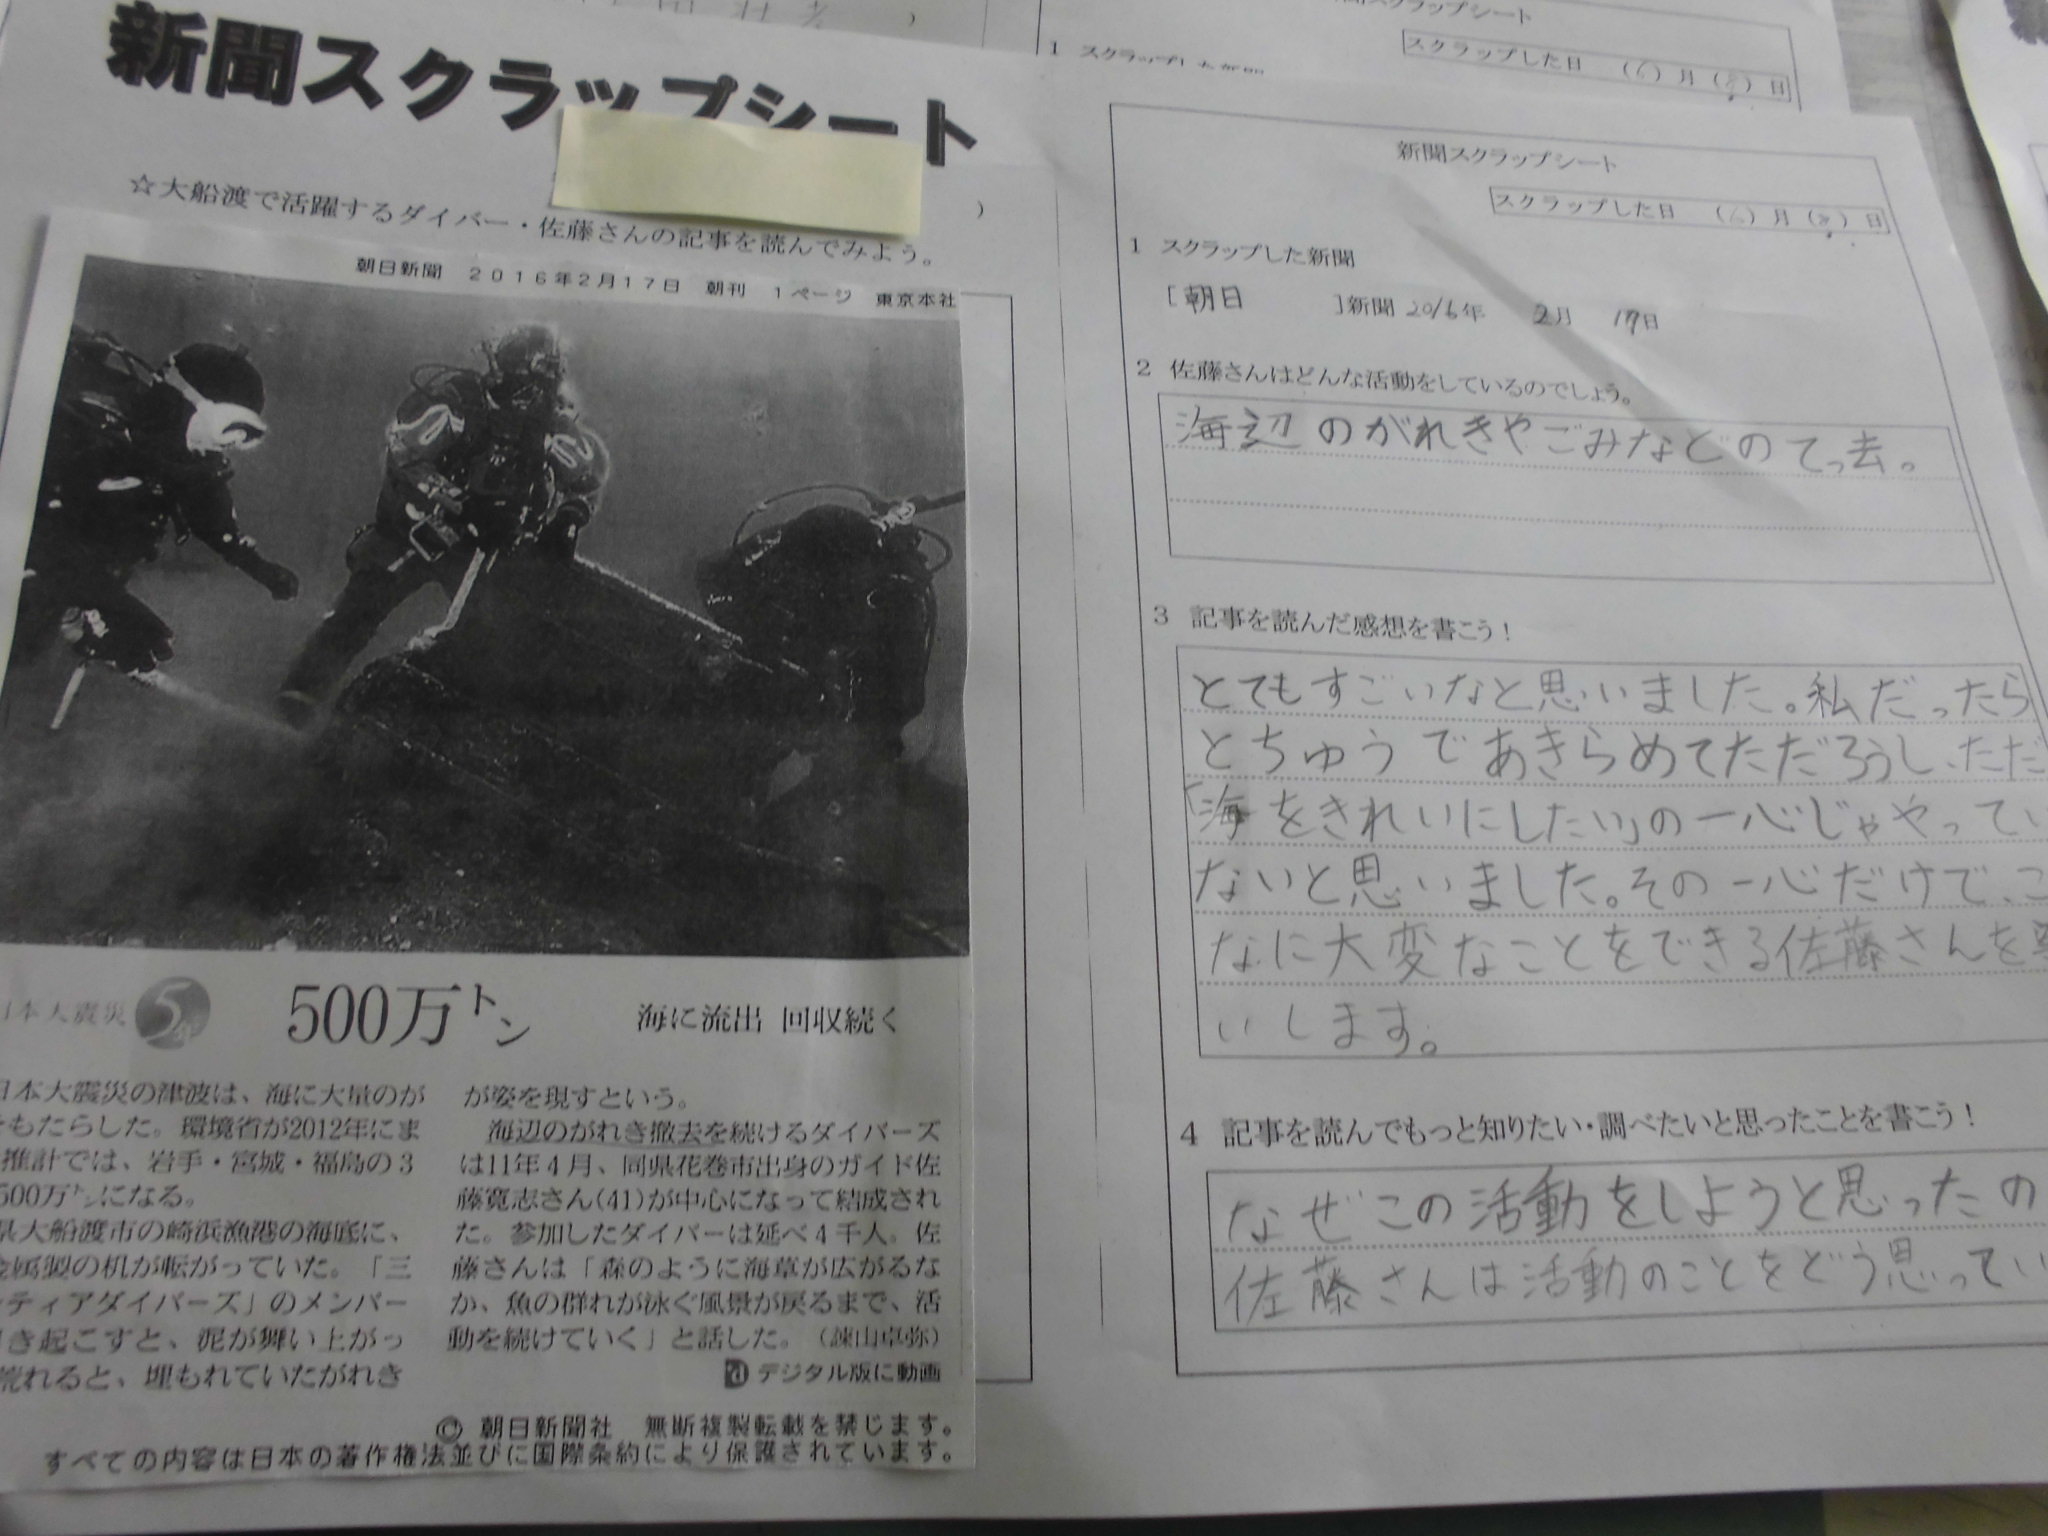 新聞スクラップシート
☆大船渡で活躍するダイバー・佐藤さんの記事を読んでみよう。
)
朝日新聞 2016年2月17日 朝刊 1ページ 東京本社
日本大震災 5年
500万トン
海に流出 回収続く
日本大震災の津波は、海に大量のが
をもたらした。環境省が2012年にま
推計では、岩手・宮城・福島の3
500万トンになる。
県大船渡市の崎浜漁港の海底に、
金属製の机が転がっていた。「三
ティアダイバーズ」のメンバー
き起こすと、泥が舞い上がっ
荒れると、埋もれていたがれき
が姿を現すという。
海辺のがれき撤去を続けるダイバーズ
は11年4月、同県花巻市出身のガイド佐
藤寛志さん(41)が中心になって結成され
た。参加したダイバーは延べ4千人。佐
藤さんは「森のように海草が広がるな
か、魚の群れが泳ぐ風景が戻るまで、活
動を続けていく」と話した。(諫山卓弥)
デジタル版に動画
© 朝日新聞社 無断複製転載を禁じます。
すべての内容は日本の著作権法並びに国際条約により保護されています。
スクラップシート
スクラップした日 (6)月(8)日
1 スクラップした新聞
新聞スクラップシート
スクラップした日 (6)月(8)日
1 スクラップした新聞
[朝日 ]新聞 2016年 2月 17日
2 佐藤さんはどんな活動をしているのでしょう。
海辺のがれきやごみなどのてっ去。
3 記事を読んだ感想を書こう!
とてもすごいなと思いました。私だったら
とちゅうであきらめてただろうし、ただ
「海をきれいにしたい」の一心じゃやってい
ないと思いました。その一心だけで、こ
なに大変なことをできる佐藤さんを
いします。
4 記事を読んでもっと知りたい・調べたいと思ったことを書こう!
なぜこの活動をしようと思ったの
佐藤さんは活動のことをどう思ってい